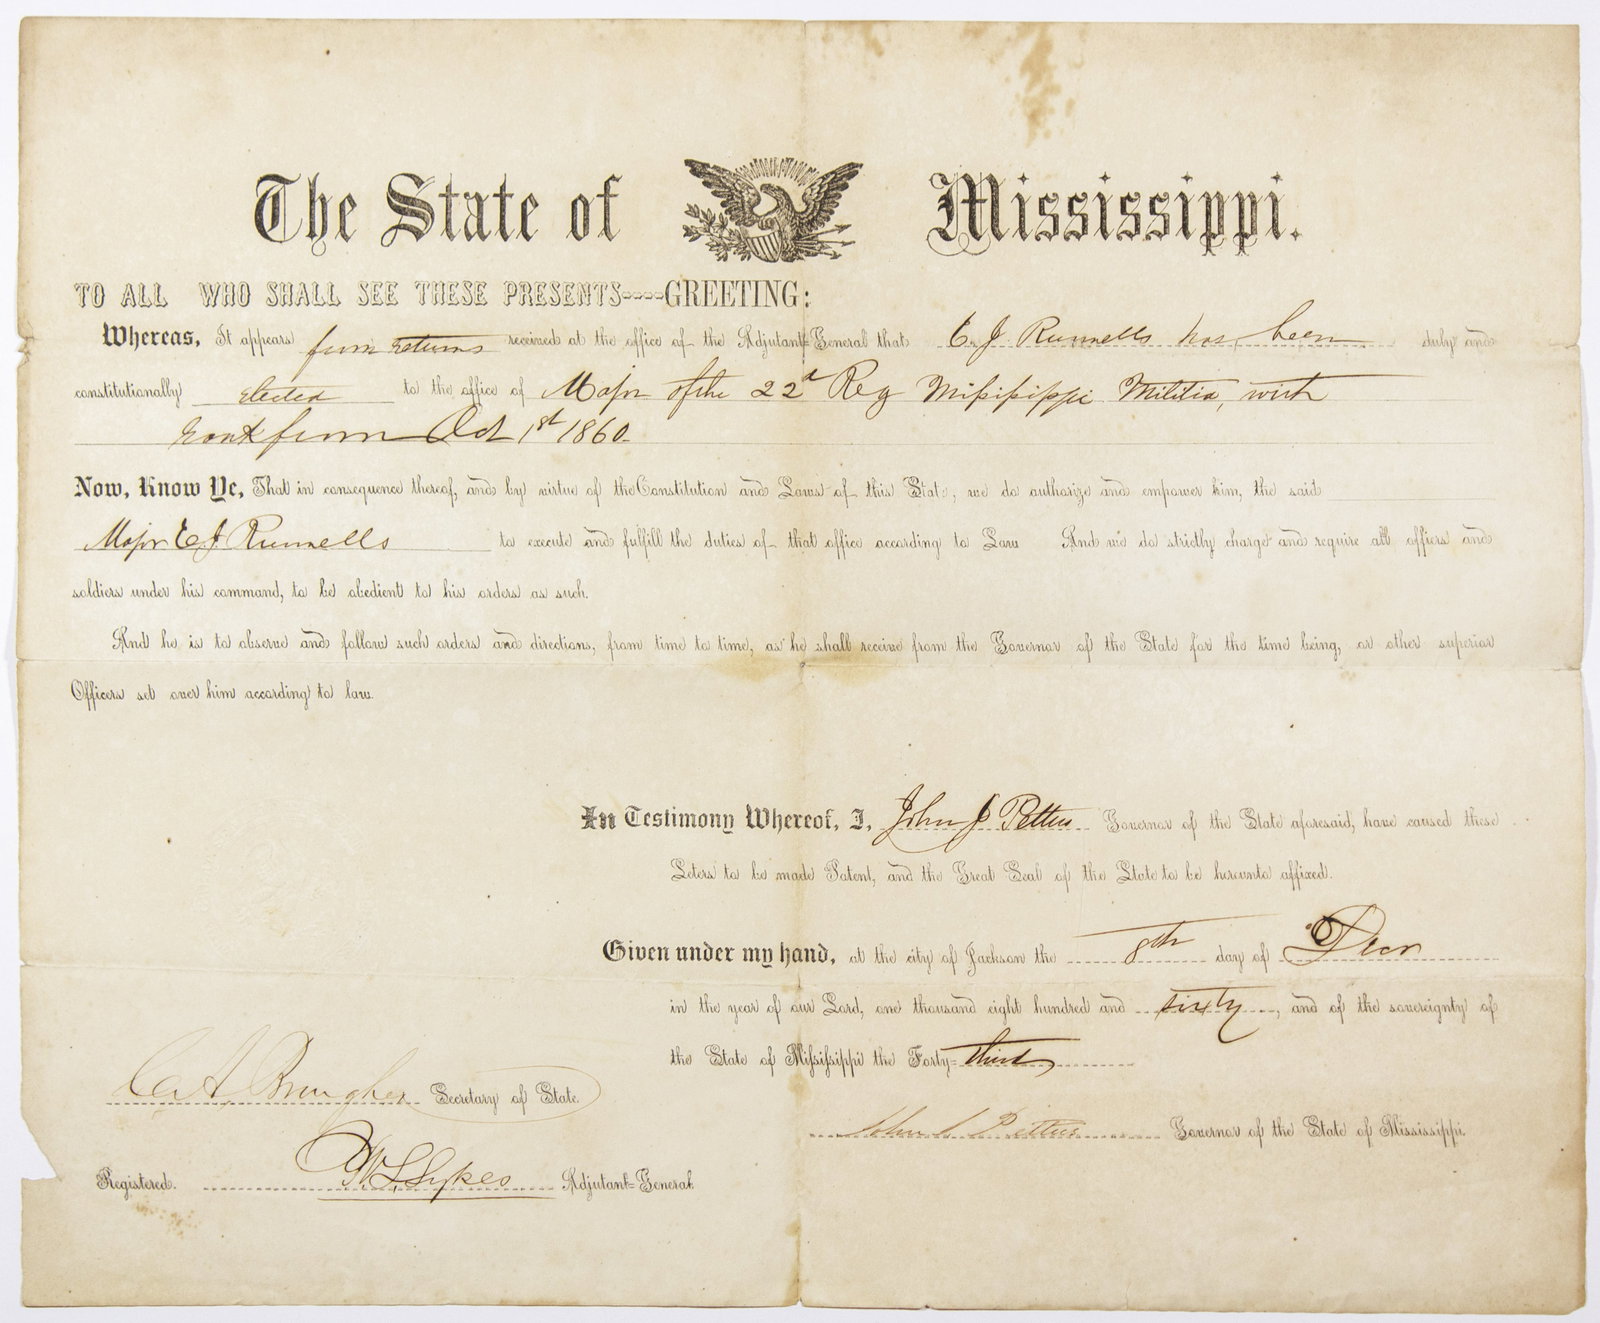 The State of Mississippi.
TO ALL WHO SHALL SEE THESE PRESENTS----GREETING:
Whereas, It appears from returns received at the office of the Adjutant-General that E. J. Runnells has been duly and
constitutionally elected to the office of Major of the 22d Reg Mississippi Militia, with
rank from Oct 1st 1860.
Now, Know Ye, That in consequence thereof, and by virtue of the Constitution and Laws of this State, we do authorize and empower him, the said
Major E J Runnells to execute and fulfill the duties of that office according to Law And we do strictly charge and require all officers and
soldiers under his command, to be obedient to his orders as such.
And he is to observe and follow such orders and directions, from time to time, as he shall receive from the Governor of the State for the time being, or other superior
Officers set over him according to law.
In Testimony Whereof, I, John J Pettus Governor of the State aforesaid, have caused these
Leters to be made Patent, and the Great Seal of the State to be hereunto affixed.
Given under my hand, at the city of Jackson the 8th day of Decr
in the year of our Lord, one thousand eight hundred and sixty, and of the sovereignty of
the State of Mississippi the Forty-third,
C A Brougher Secretary of State
John J Pettus Governor of the State of Mississippi.
Registered. W L Sykes Adjutant-General.